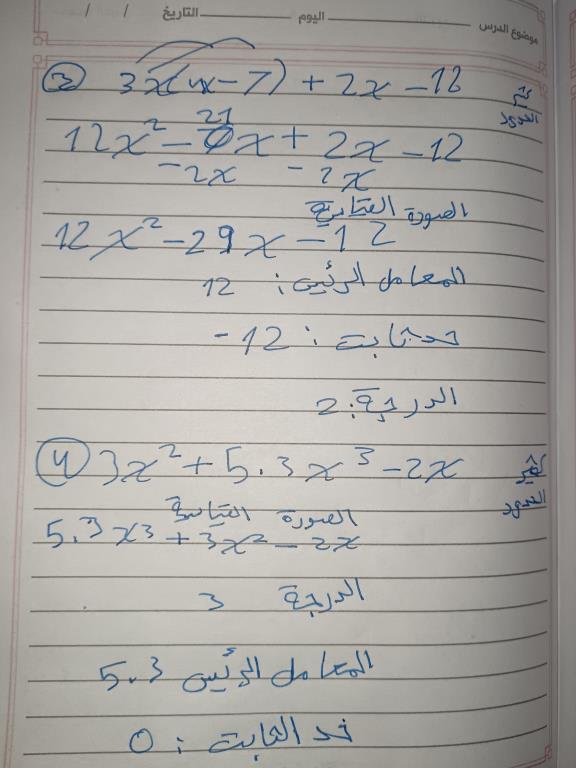 موضوع الدرس اليوم التاريخ / /
③ 3x(4x-7) + 2x -12 كثير الحدود
12x² - 21x + 2x - 12
-2x -2x
الصورة القياسية
12x² - 29x - 12
المعامل الرئيس: 12
حد ثابت: -12
الدرجة: 2
④ 3x² + 5.3x³ - 2x كثير الحدود
الصورة القياسية
5.3x³ + 3x² - 2x
الدرجة 3
المعامل الرئيس 5.3
حد الثابت: 0